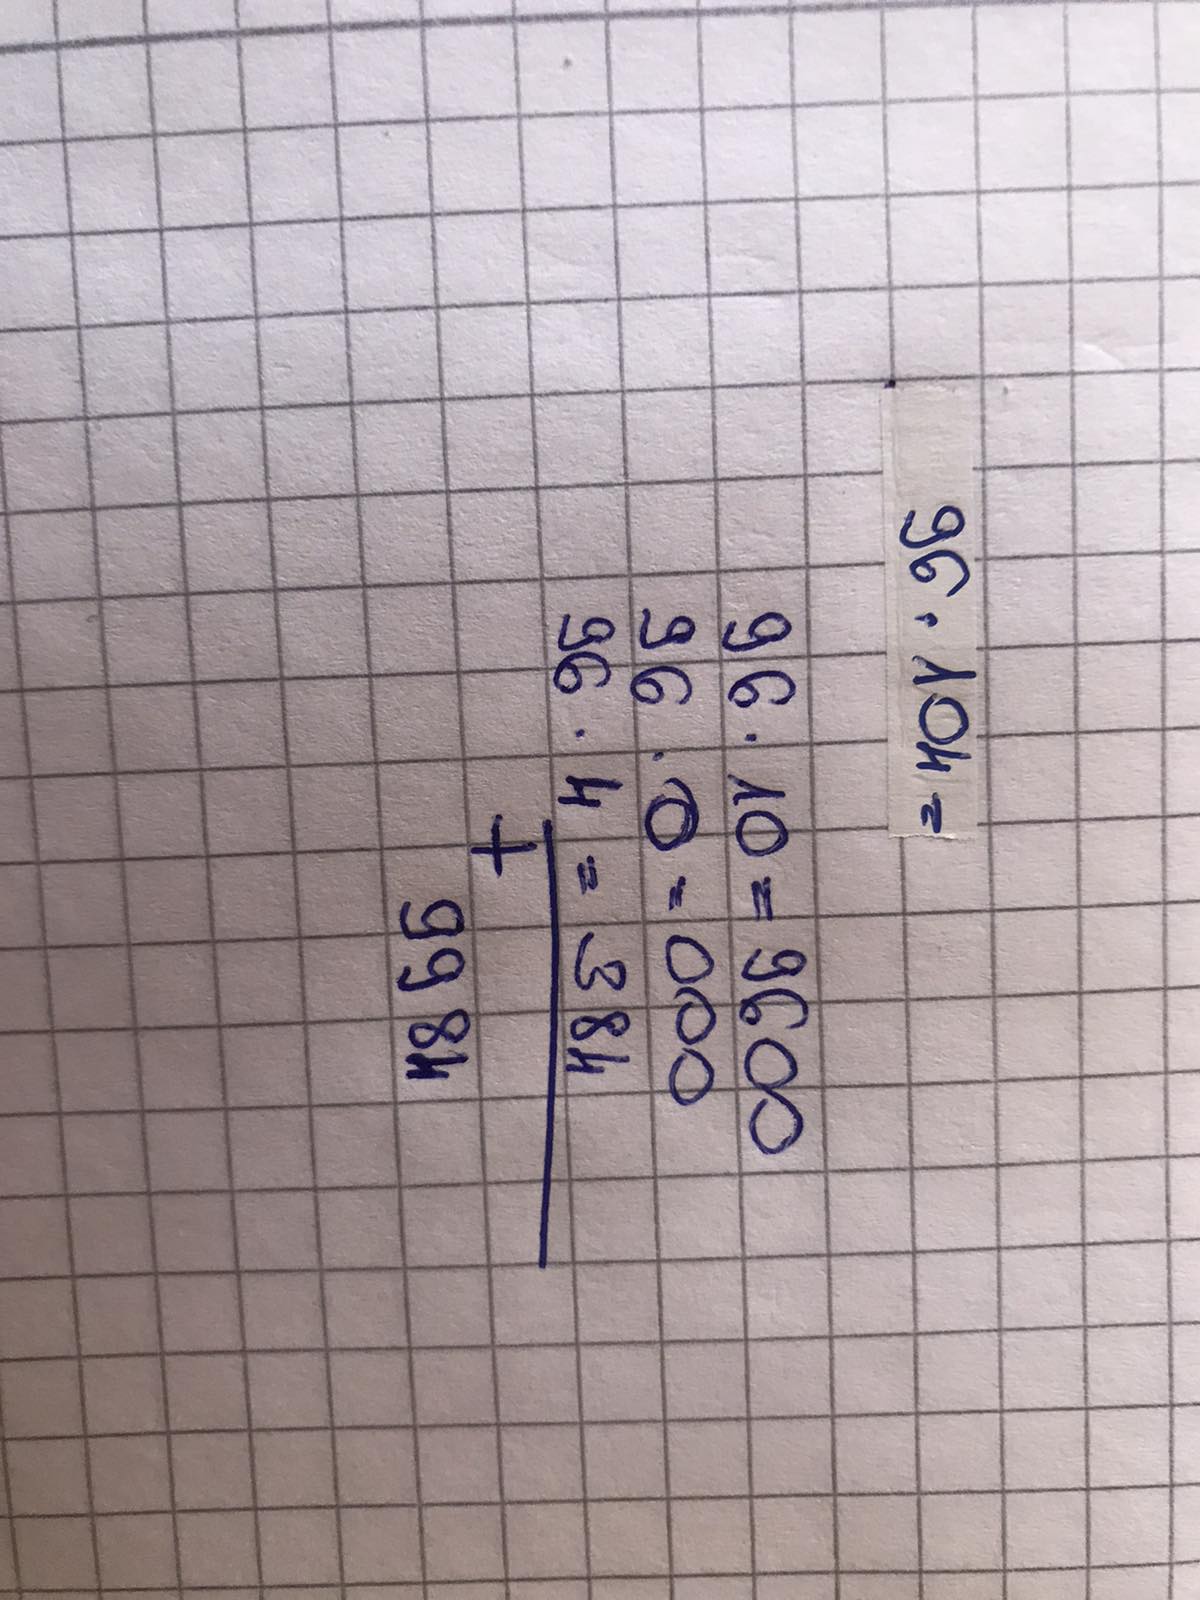 96 · 104 =
96 · 10 = 9600
96 · 0 = 000
96 · 4 = 384
+
9984